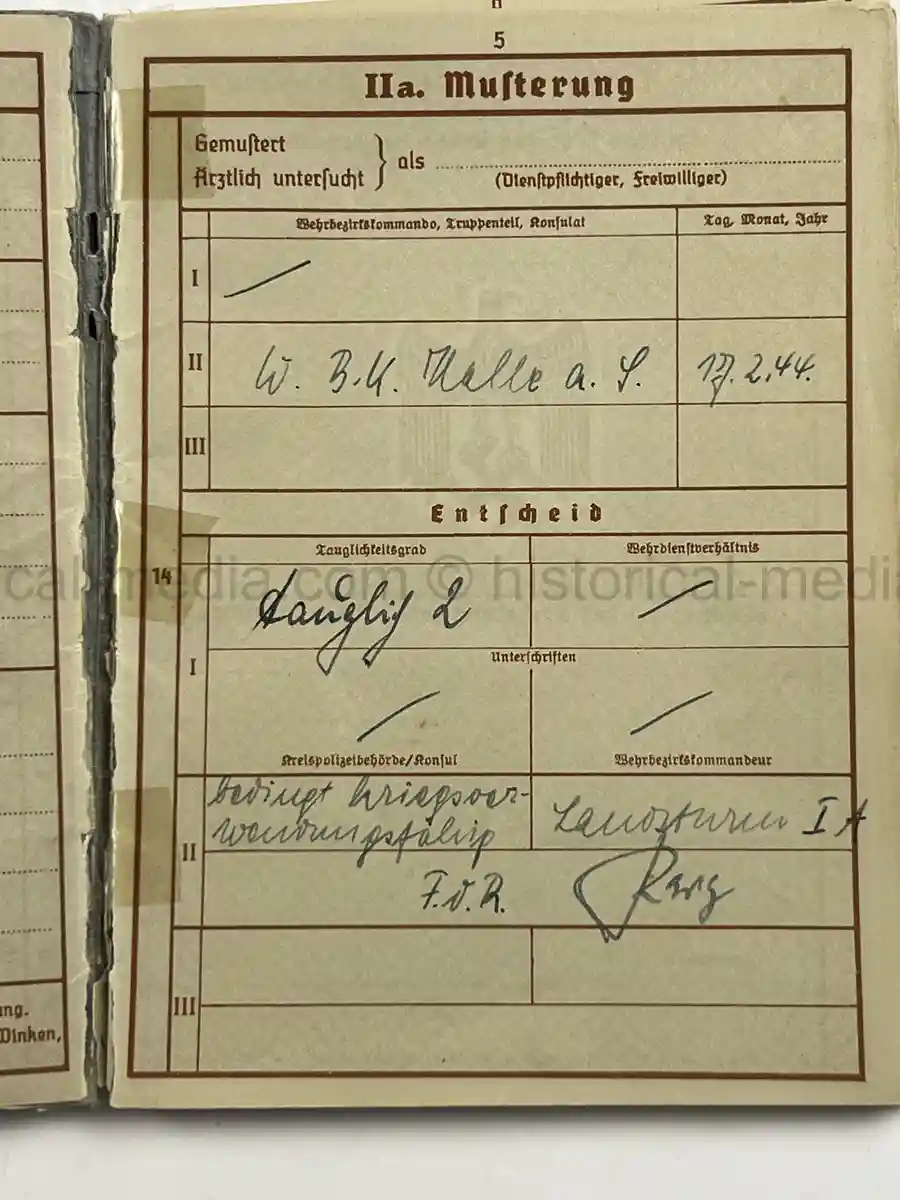 5
IIa. Muſterung
Gemuſtert
Ärztlich unterſucht } als
(Dienſtpflichtiger, Freiwilliger)
Wehrbezirkskommando, Truppenteil, Konſulat
Tag, Monat, Jahr
I
II W. B. K. Halle a. S. 17. 2. 44.
III
Entſcheid
Tauglichkeitsgrad
Wehrdienſtverhältnis
cal-media.com © historical-medi
14
tauglich 2
I
Unterſchriften
Kreispolizeibehörde/Konſul
Wehrbezirkskommandeur
bedingt kriegsver-
wendungsfähig
Landsturm I A
II
F. d. R.
III
ung.
Dinken,